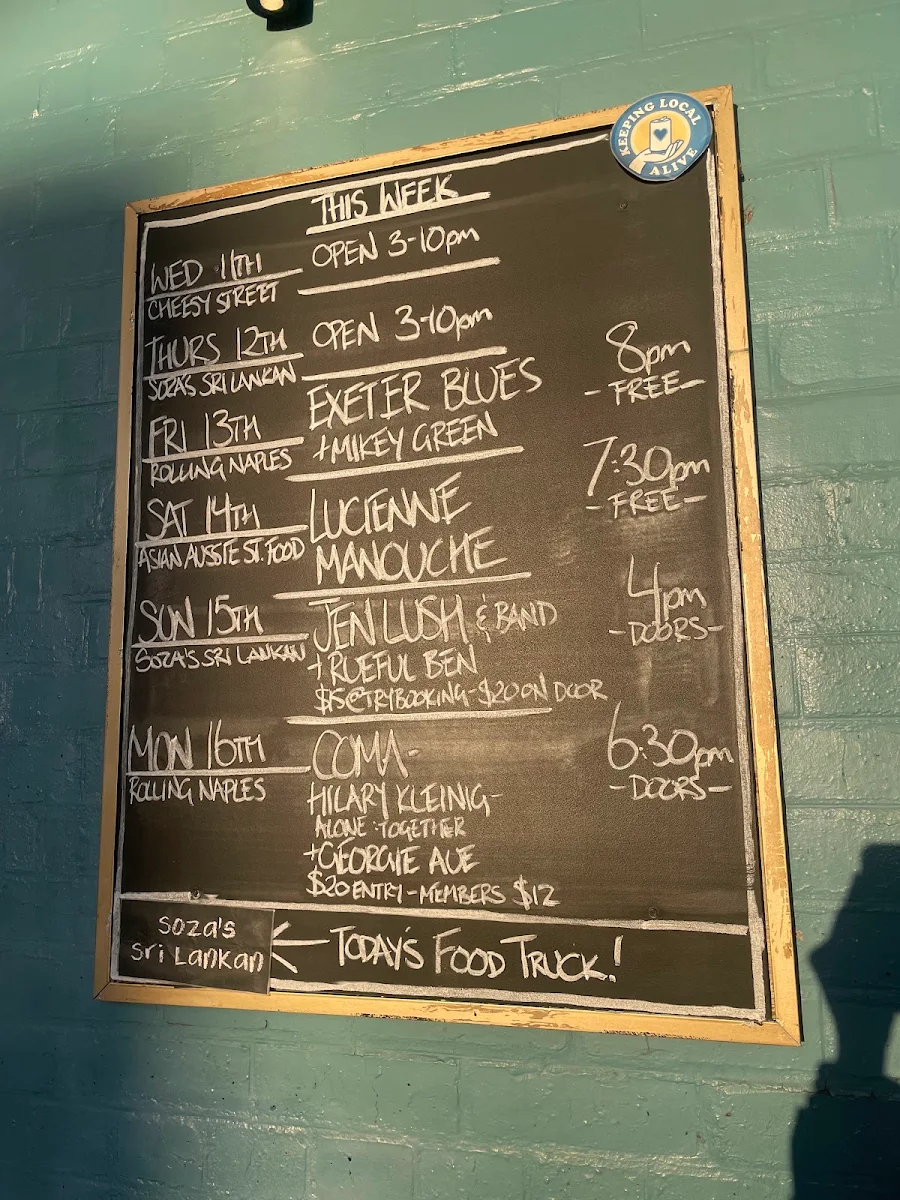 KEEPING LOCAL ALIVE
THIS WEEK
WED 11TH
CHEESY STREET
OPEN 3-10pm
THURS 12TH
SOZA'S SRI LANKAN
OPEN 3-10pm
FRI 13TH
ROLLING NAPLES
EXETER BLUES
+MIKEY GREEN
8pm
-FREE-
SAT 14TH
ASIAN AUSSIE ST. FOOD
LUCIENNE
MANOUCHE
7:30pm
-FREE-
SUN 15TH
SOZA'S SRI LANKAN
JEN LUSH & BAND
+ RUEFUL BEN
$15@TRYBOOKING-$20 ON DOOR
4pm
-DOORS-
MON 16TH
ROLLING NAPLES
COMA-
HILARY KLEINIG-
ALONE TOGETHER
+GEORGIE AUE
$20 ENTRY-MEMBERS $12
6:30pm
-DOORS-
Soza's
Sri Lankan
TODAY'S FOOD TRUCK!